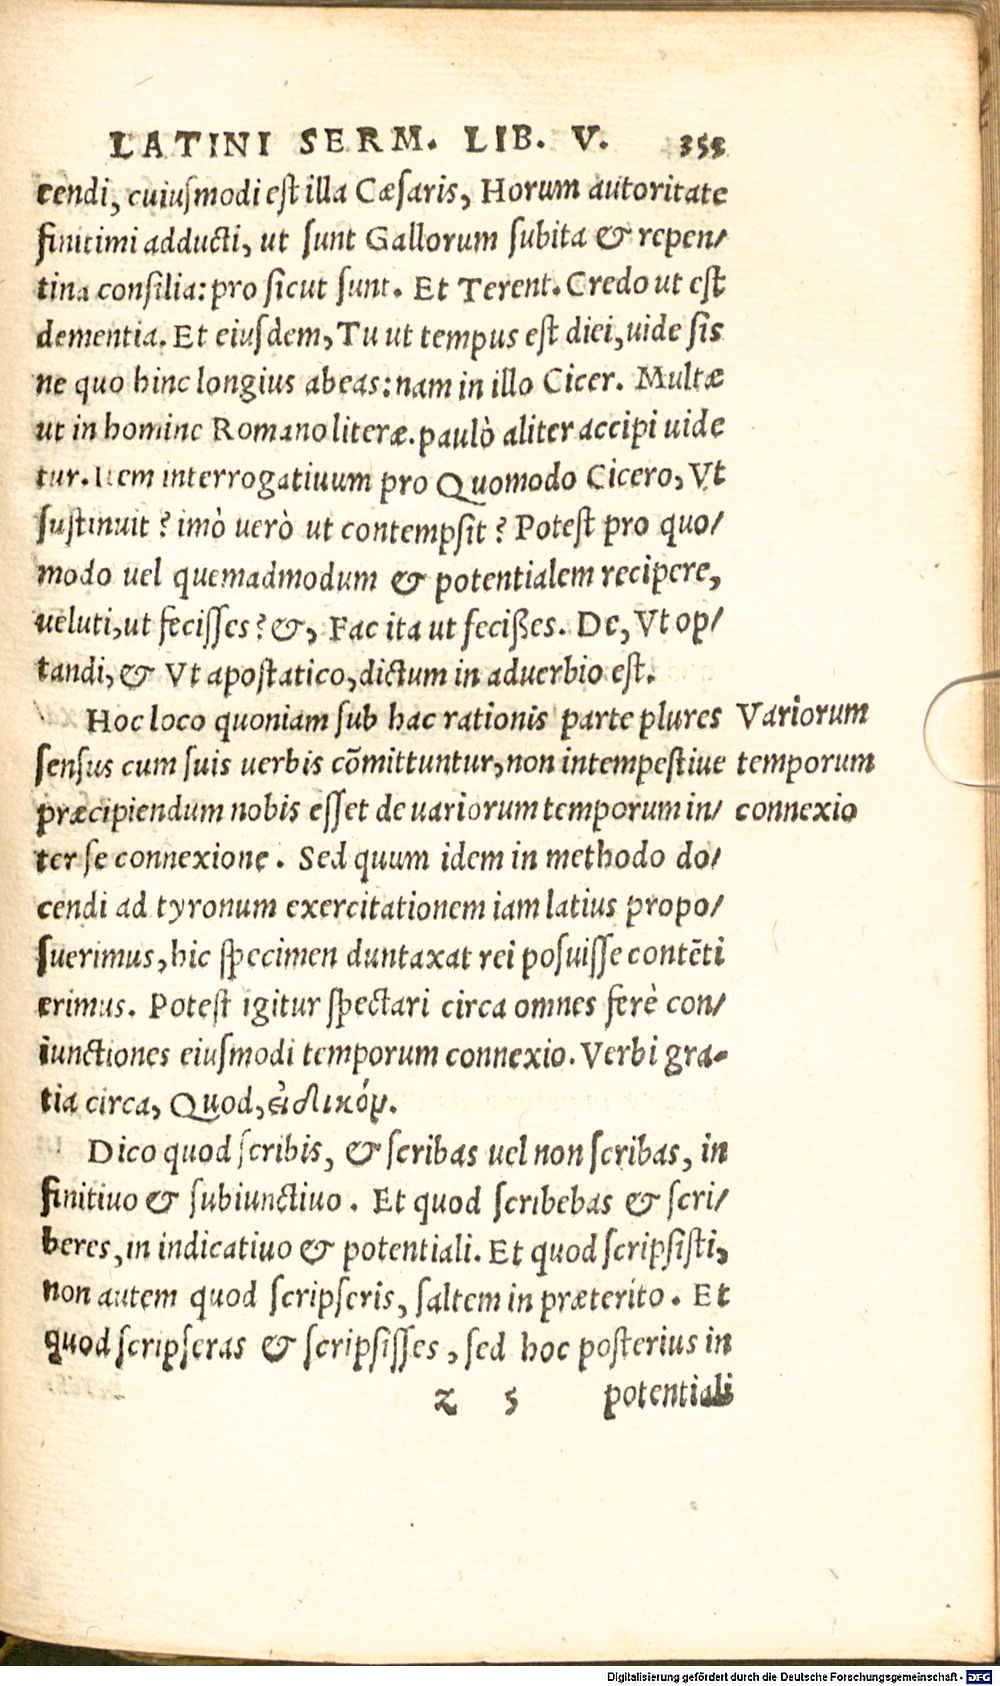 LATINI SERM. LIB. V. 353
cendi, cuiusmodi est illa Cæsaris, Horum autoritate
finitimi adducti, ut sunt Gallorum subita & repen/
tina consilia: pro sicut sunt. Et Terent. Credo ut est
dementia. Et eiusdem, Tu ut tempus est diei, uide sis
ne quo hinc longius abeas: nam in illo Cicer. Multæ
ut in homine Romano literæ. paulò aliter accipi uide
tur. Item interrogatiuum pro Quomodo Cicero, Vt
sustinuit? imò uerò ut contempsit? Potest pro quo/
modo uel quemadmodum & potentialem recipere,
ueluti, ut fecisses? &, Fac ita ut fecißes. De, Vt op/
tandi, & Vt apostatico, dictum in aduerbio est.
Hoc loco quoniam sub hac rationis parte plures
sensus cum suis uerbis cōmittuntur, non intempestiue
præcipiendum nobis esset de uariorum temporum in/
ter se connexione. Sed quum idem in methodo do/
cendi ad tyronum exercitationem iam latius propo/
suerimus, hic specimen duntaxat rei posuisse contēti
erimus. Potest igitur spectari circa omnes ferè con/
iunctiones eiusmodi temporum connexio. Verbi gra-
tia circa, Quod, εἰδικόν.
Variorum
temporum
connexio
Dico quod scribis, & scribas uel non scribas, in
finitiuo & subiunctiuo. Et quod scribebas & scri/
beres, in indicatiuo & potentiali. Et quod scripsisti,
non autem quod scripseris, saltem in præterito. Et
quod scripseras & scripsisses, sed hoc posterius in
z 5 potentiali
Digitalisierung gefördert durch die Deutsche Forschungsgemeinschaft - DFG